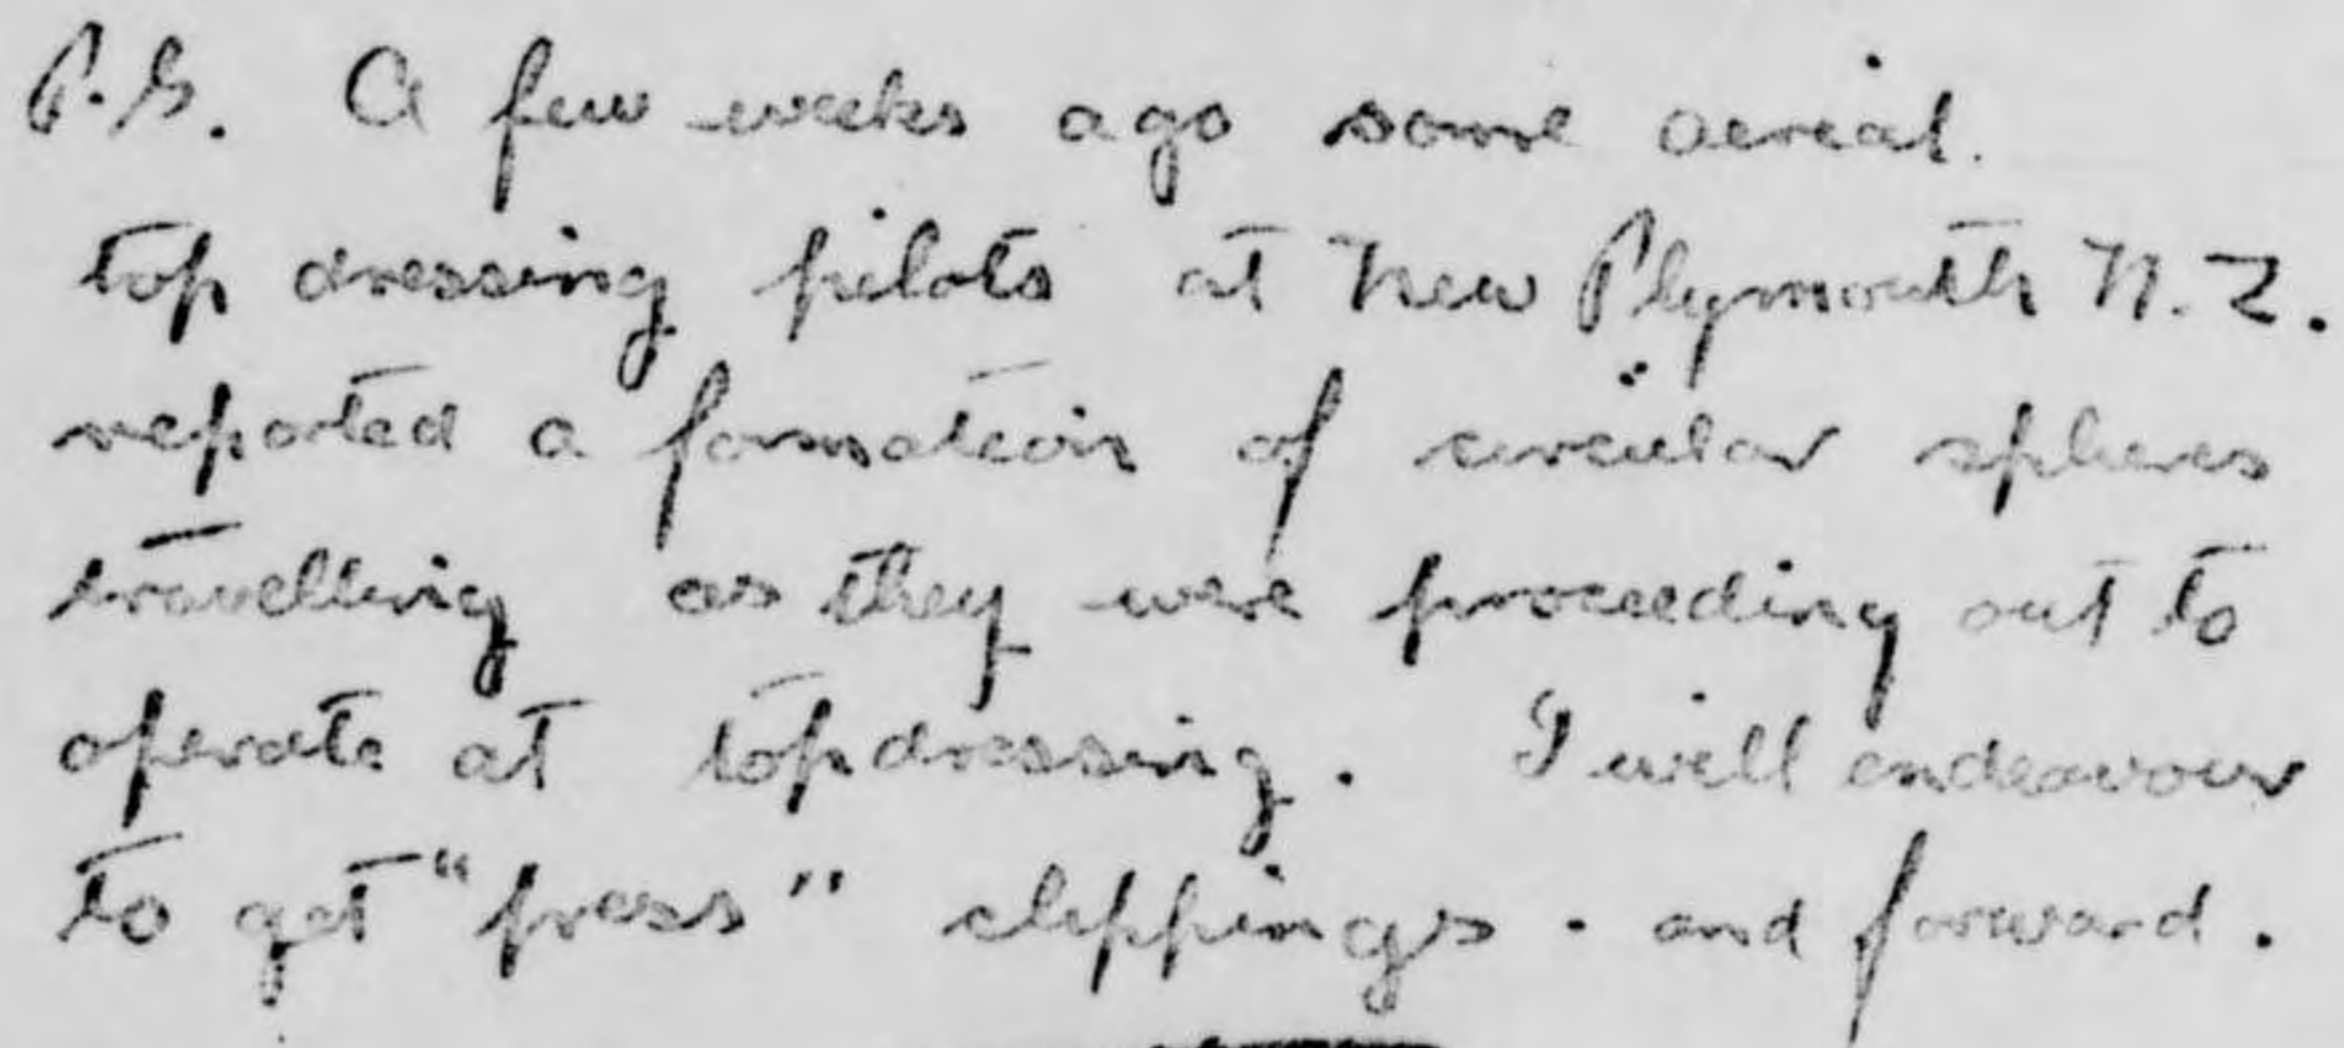 P.S. A few weeks ago some aerial.
top dressing pilots at New Plymouth N.Z.
reported a formation of circular spheres
travelling as they were proceeding out to
operate at topdressing. I will endeavour
to get "press" clippings. and forward.